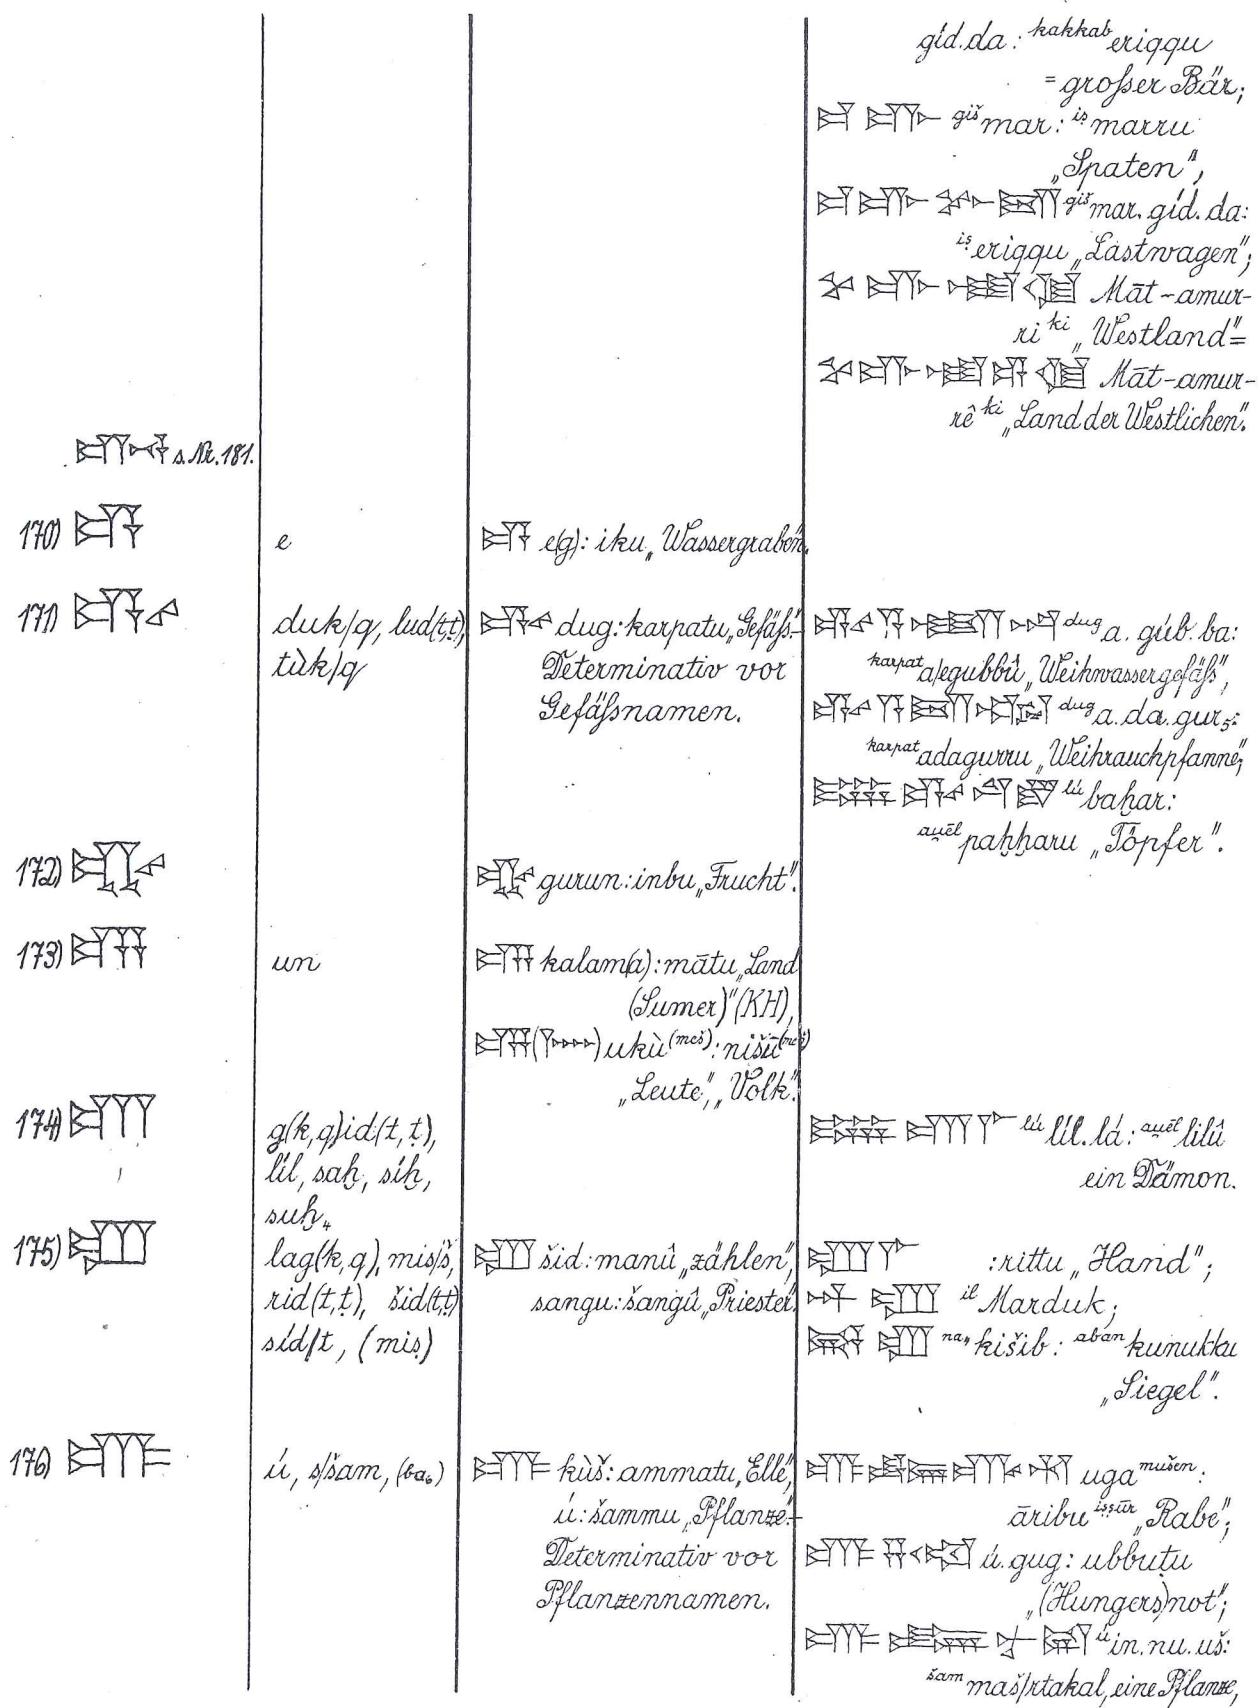 gíd.da: kakkab eriqqu
= großer Bär;
𒄑 𒈥 giš mar: iṣ marru
„Spaten";
𒄑 𒈥 𒁍 𒁕 giš mar. gíd. da:
iṣ eriqqu „Lastwagen";
𒆳 𒈥 𒌷 𒆠 Māt-amur-
ri ki „Westland" =
𒆳 𒈥 𒌷 𒂊 𒆠 Māt-amur-
rê ki „Land der Westlichen".
s. Nr. 181.
170) 𒂊
e
𒂊 e(g): iku „Wassergraben".
171) 𒂁
duk/q, lud(t,ṭ),
tùk/q
𒂁 dug: karpatu „Gefäß"
Determinativ vor
Gefäßnamen.
𒂁 𒀀 𒁺 𒁀 dug a. gúb. ba:
karpat a/egubbû „Weihwassergefäß",
𒂁 𒀀 𒁕 𒄥 dug a. da. gur₅:
karpat adagurru „Weihrauchpfanne",
lú baḫar:
au̯ēl paḫḫaru „Töpfer".
172) 𒄧
𒄧 gurun: inbu „Frucht".
173) 𒌦
un
𒌦 kalam(a): mātu „Land
(Sumer)" (KH),
𒌦(𒈨𒌍) ukù (meš): nišū (meš)
„Leute", „Volk".
174) 𒆤
g(k,q)id(t,ṭ),
líl, saḫ, síḫ,
suḫ₄
𒇽 𒆤 𒇲 lú líl. lá: au̯ēl lilû
ein Dämon.
175) 𒋃
lag(k,q), mis/š,
rid(t,ṭ), šid(t,ṭ)
síd/t, (miṣ)
𒋃 šid: manû „zählen",
sangu: šangû „Priester".
𒋃 𒇲 : rittu „Hand";
𒀭 𒋃 il Marduk;
𒉌𒌓 𒋃 na₄ kišib: aban kunukku
„Siegel".
176) 𒌑
ú, s/šam, (ba₆)
𒌑 kùš: ammatu „Elle",
ú: šammu „Pflanze".
Determinativ vor
Pflanzennamen.
uga mušen:
āribu iṣṣūr „Rabe";
ú. gug: ubbuṭu
„(Hungers)not";
𒌑 𒅔 𒉡 𒍑 ú in. nu. uš:
šam maš/rtakal, eine Pflanze,